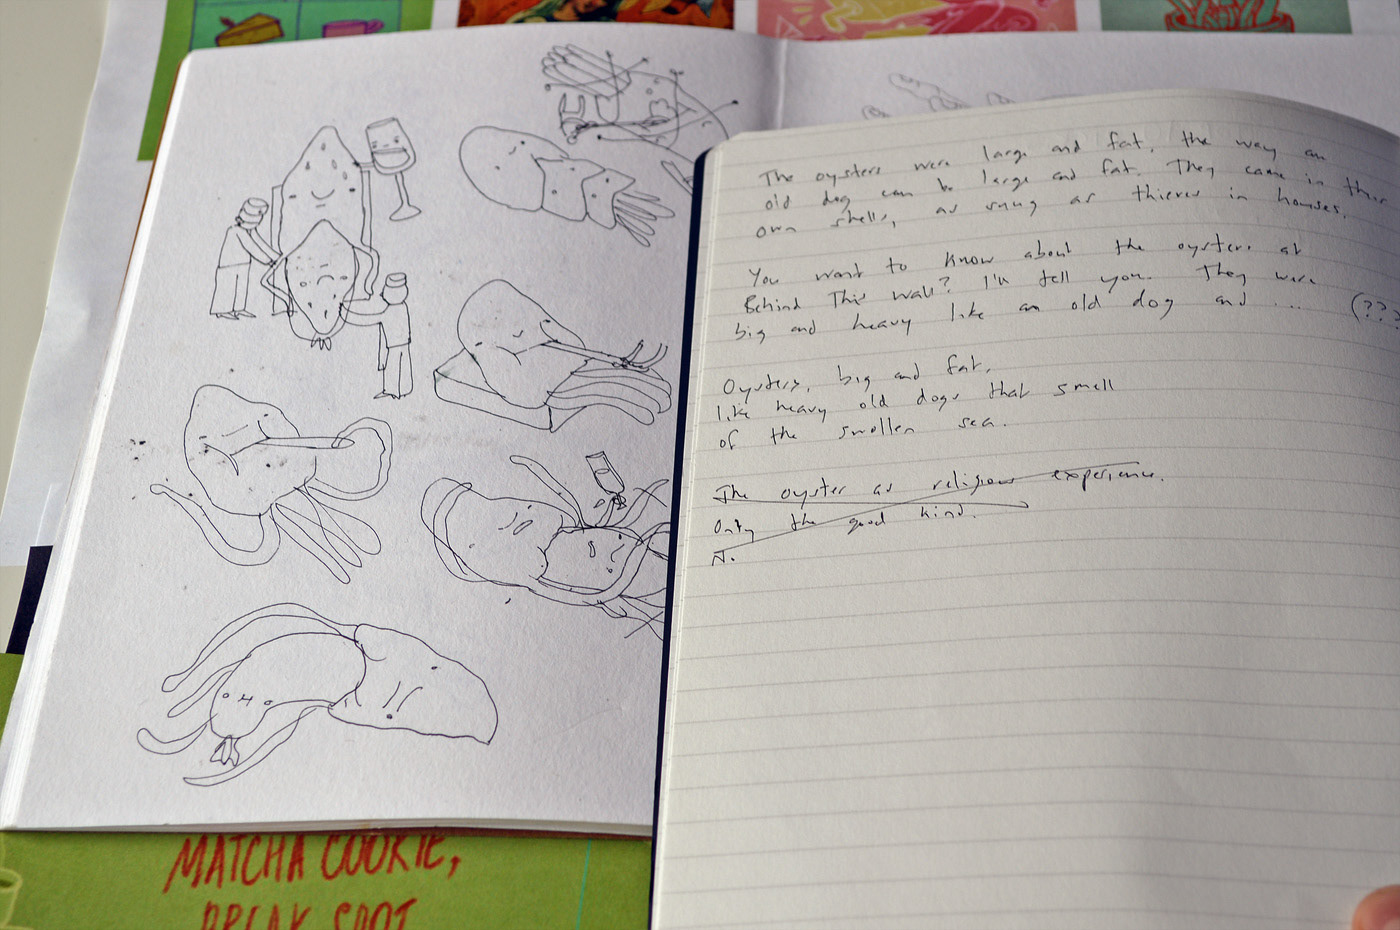 The oysters were large and fat, the way an
old dog can be large and fat. They came in their
own shells, as snug as thieves in houses.
You want to know about the oysters at
Behind This Wall? I'll tell you. They were
big and heavy like an old dog and ... (???
Oysters, big and fat,
like heavy old dogs that smell
of the swollen sea.
The oyster as religious experience.
Only the good kind.
N.
MATCHA COOKIE,
BREAK SPOT